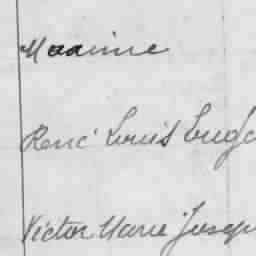 Maxime
René Louis Eug
Victor Marie Josep